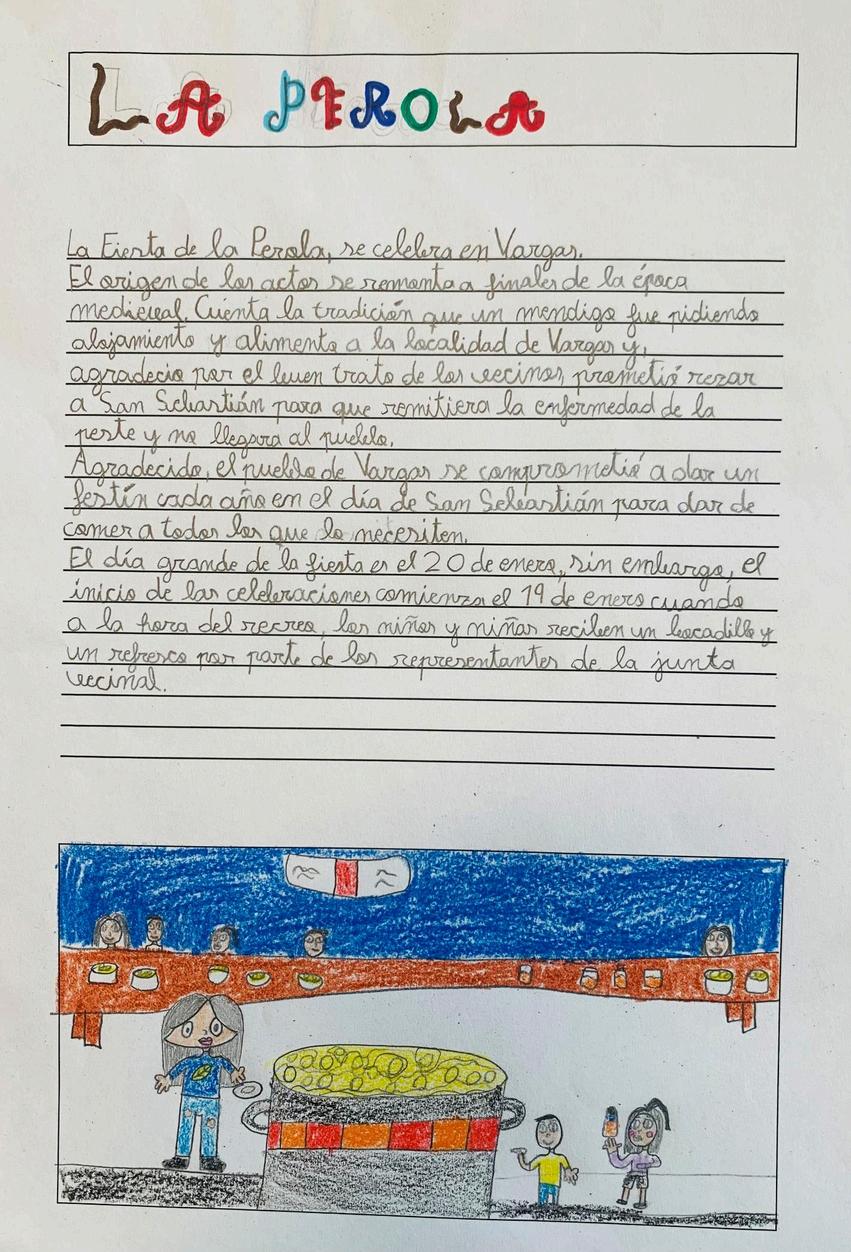 LA PEROLA
La Fiesta de la Perola, se celebra en Vargas.
El origen de los actos se remonta a finales de la época
medieval. Cuenta la tradición que un mendigo fue pidiendo
alojamiento y alimento a la localidad de Vargas y,
agradecio por el buen trato de los vecinos, prometió rezar
a San Sebastián para que remitiera la enfermedad de la
peste y no llegara al pueblo.
Agradecido, el pueblo de Vargas se comprometió a dar un
festín cada año en el día de San Sebastián para dar de
comer a todos los que lo necesiten.
El día grande de la fiesta es el 20 de enero, sin embargo, el
inicio de las celebraciones comienza el 19 de enero cuando
a la hora del recreo, los niños y niñas reciben un bocadillo y
un refresco por parte de los representantes de la junta
vecinal.